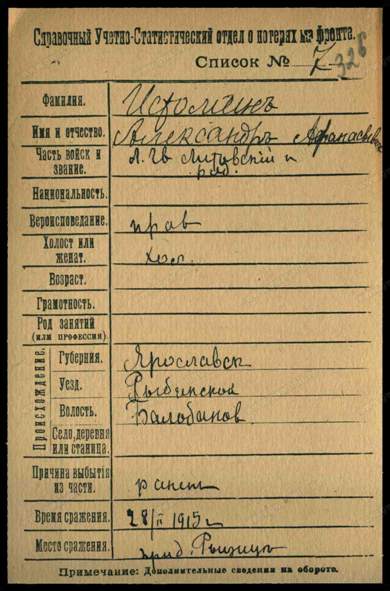 Справочный Учетно-Статистический отдел о потерях на фронте.
Список № 7
326
Фамилия. Истоминъ
Имя и отчество. Александръ Афанасьевъ
Часть войск и
звание. Л. Гв Литовскій п
ряд.
Национальность.
Вероисповедание. прав
Холост или
женат. хол.
Возраст.
Грамотность.
Род занятий
(или профессия).
Происхождение.
Губерния. Ярославск
Уезд. Рыбинской
Волость. Балобанов.
Село, деревня
или станица.
Причина выбытия
из части. ранен
Время сражения. 28/II 1915 г
Место сражения.
Примечание: Дополнительные сведения на обороте.